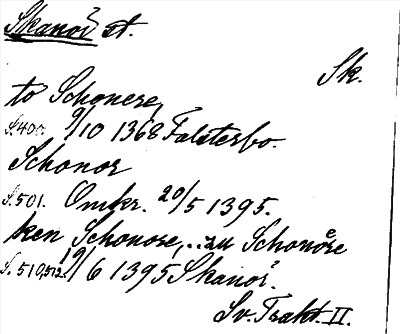 Skanör st.
Sk.
to Schonere,
S.400. 9/10 1368 Falsterbo.
Schonor
S.501. Omkr. 20/5 1395.
ken Schonore,... zu Schonöre
S. 510,512. 19/6 1395 Skanör.
Sv. Trakt. II.